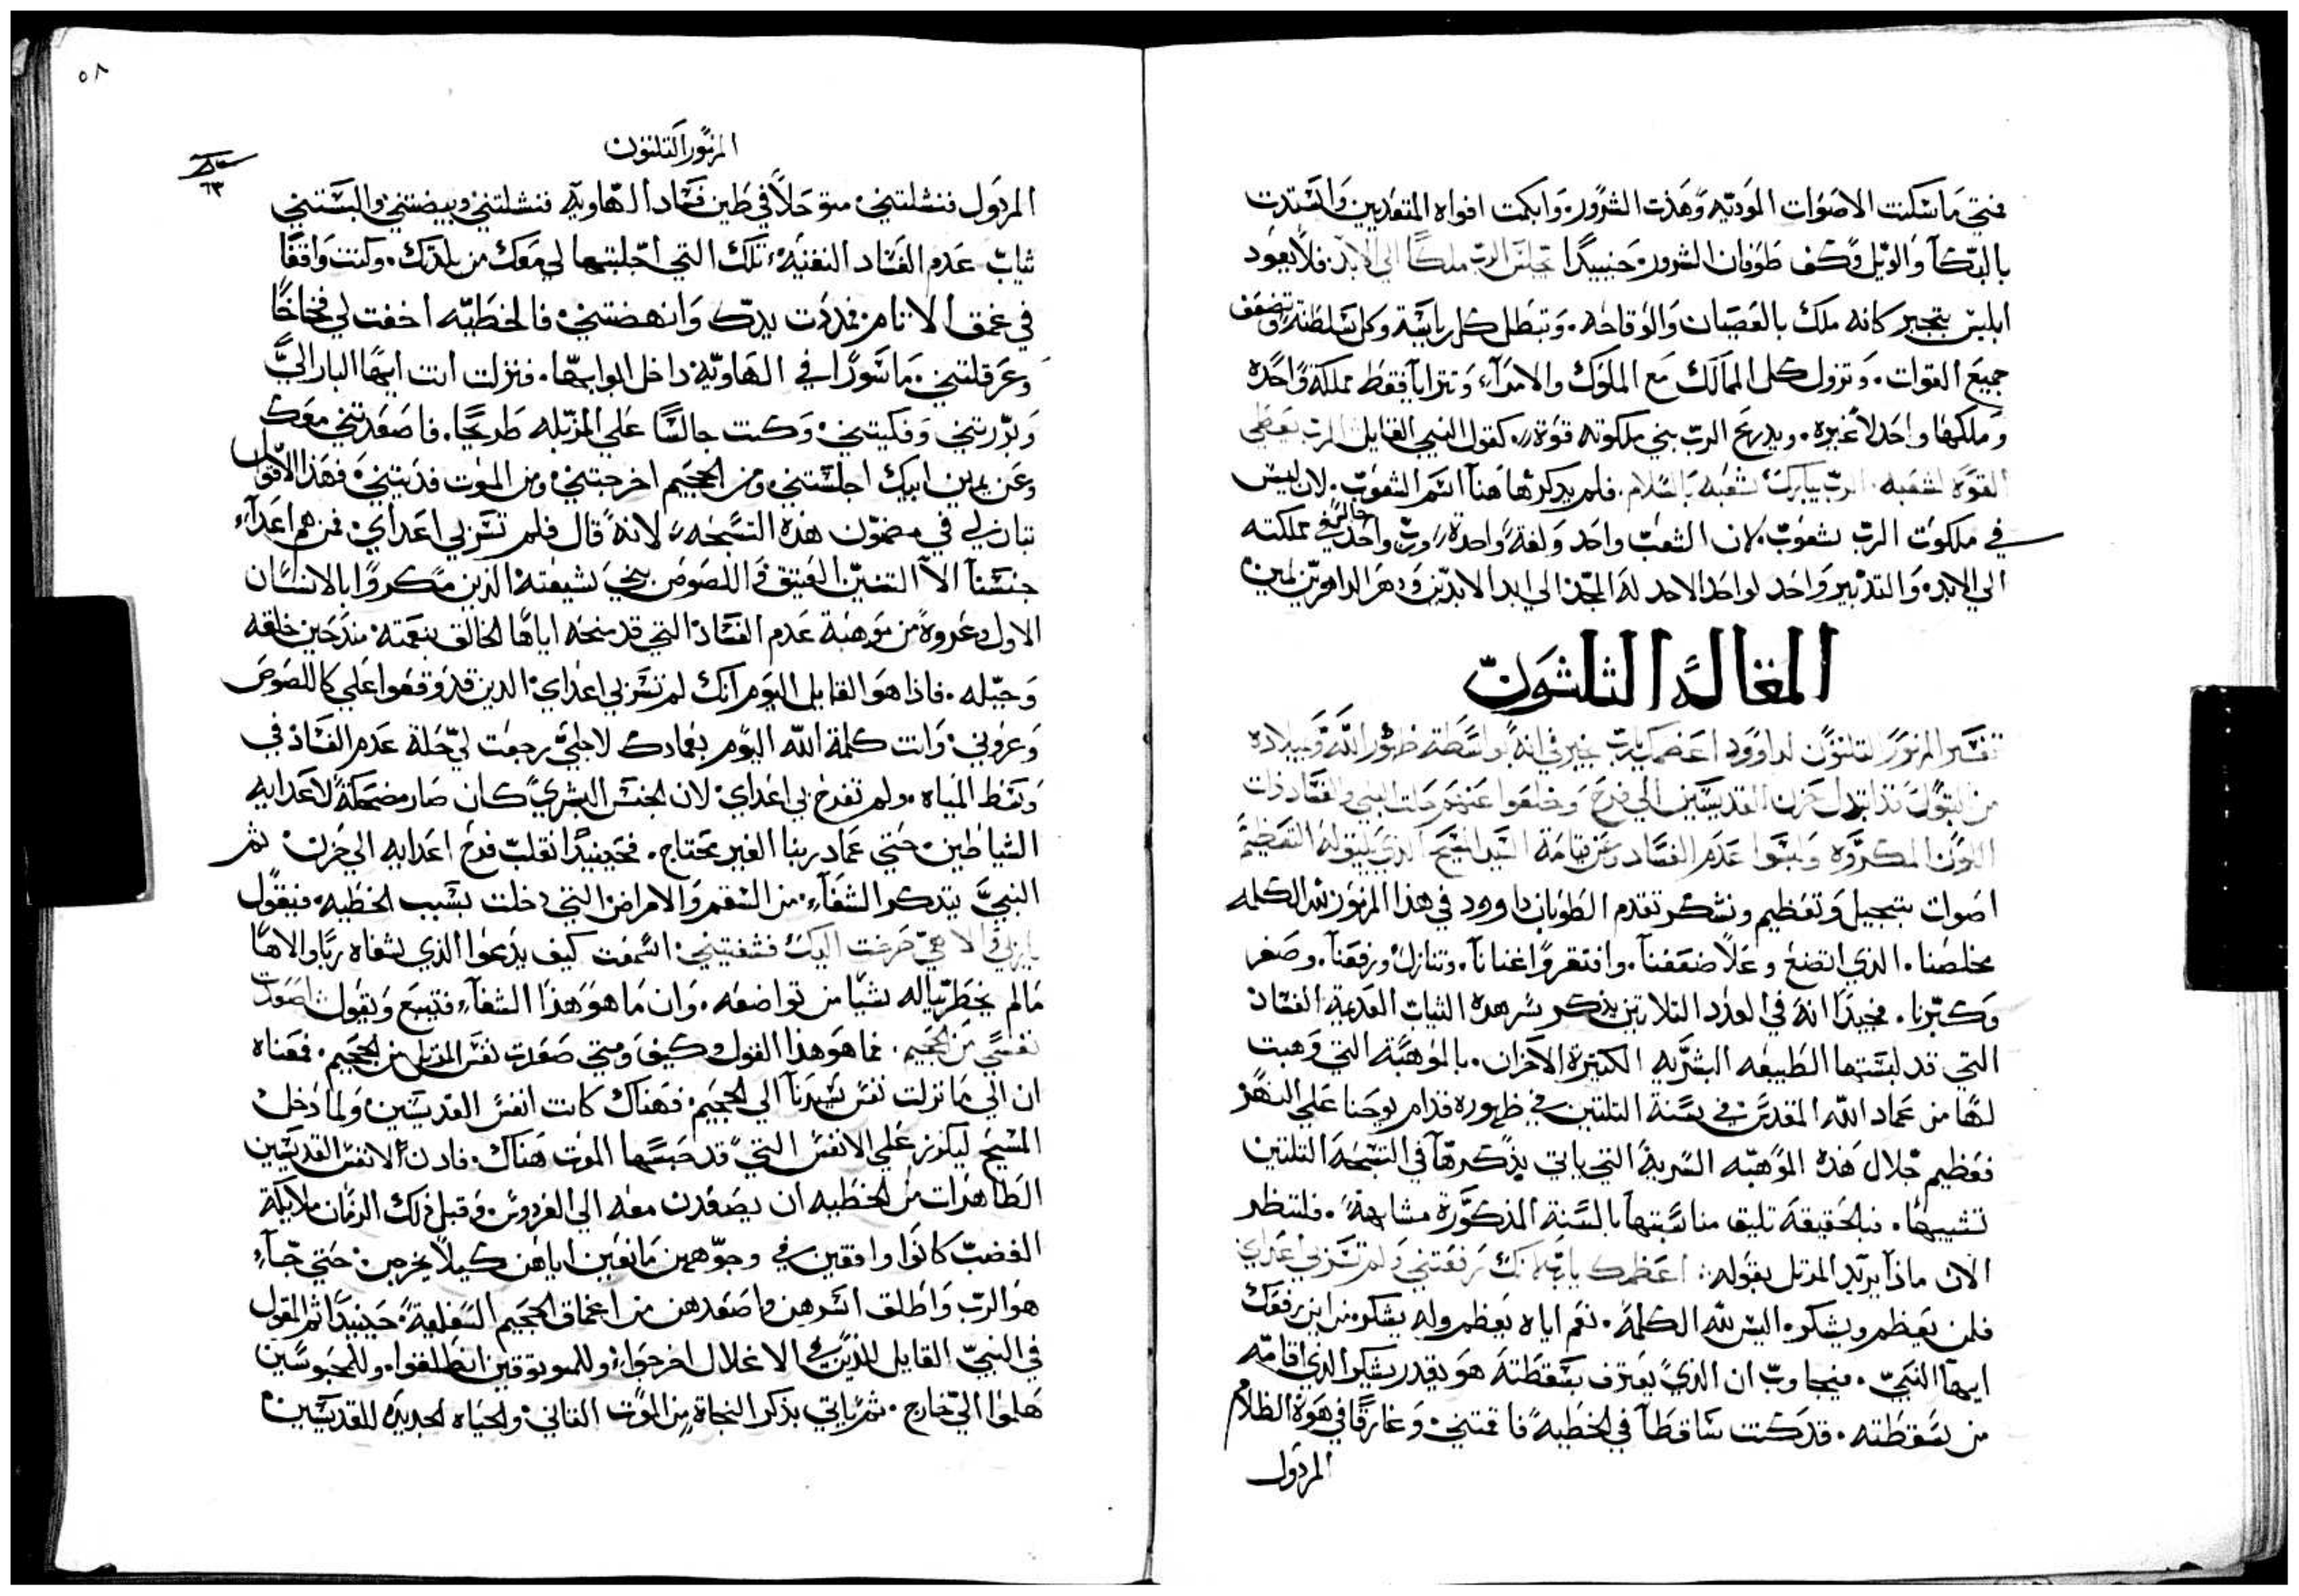 فمتى ما سكتت الاصوات الموديه وهذت الشرور وابكمت افواه المتعديين وانسدت
بالبكآ والويل وكف طوفان الشرور حينيدا يجلس الرب ملكا الى الابد فلا يعود
ابليس يتجبر كانه ملك بالعصيان والوقاحه وتبطل كل رياسة وكل سلطنة وتضعف
جميع القوات وتزول كل الممالك مع الملوك والامرآء وتترايا فقط مملكة واحده
وملكها واحد لا غيره ويدرع الرب بني ملكوته قوة كقول النبي القايل الرب يعطي
القوة لشعبه الرب يبارك شعبه بالسلام فلم يدكر هاهنا اسم الشعوب لان ليس
في ملكوت الرب شعوب لان الشعب واحد ولغة واحدة ورب واحد في مملكته
الى الابد والتدبير واحد لواحد الاحد له المجد الى ابد الابدين ودهر الداهرين امين
المقالة الثلثون
تفسير المزمور التلتون لداوود اعظمك يارب يخبر فيه انه بواسطة ظهور الله وميلاده
من البتول
اصوات بتبجيل وتعظيم ونشكر تقدم الطوبان داوود في هذا المزمور لله الكلمه
مخلصنا الذي اتضع وعلا ضعفنآ وافتقر واغنانآ وتنازل ورفعنآ وصغر
وكبرنا فجيدا انه في العدد التلاتين يذكر سر هده التياب العديمة الفساد
التي قد لبستها الطبيعه البشريه الكتيرة الاحزان بالموهبة التي وهبت
لها من عماد الله المقدس في سنة التلتين في ظهوره قدام يوحنا على النهر
فعظيم جلال هذه الموهبه السرية التي ياتي يذكرها في التسبحة التلتين
تشبيها فبالحقيقه تليق مناسبتها بالسنة المذكورة مشابهة فلننظر
الان ماذا يريد المرتل بقوله اعظمك يارب لانك رفعتني ولم تسر بي اعداي
فلمن يعظم ويشكر اليس لله الكلمة نعم اياه يعظم وله يشكر من اين رفعك
ايها النبي فيجاوب ان الذي يعترف بسقطته هو يقدر يشكر الذي اقامه
من سقطته قد كنت ساقطآ في الخطيه فاقمتني وغارقا في هوة الظلام
المردول
٥٨
المزمور التلتون
٦٣
المردول فنشلتني متوحلا في طين فساد الهاويه فنشلتني وبيضتني والبستني
ثياب عدم الفساد النقيه تلك التي اجلبتها لي معك من بلدتك وكنت واقعا
في عمق الاتام فمددت يدك وانهضتني فالخطيه اخفت لي فخاخا
وعرقلتني ماسورا في الهاوية داخل ابوابها فنزلت انت ايها البار الي
وبررتني وفكيتني وكنت جالسا على المزبله طريحا فاصعدتني معك
وعن يمين ابيك اجلستني ومن الجحيم اخرجتني ومن الموت فديتني فهذا الاقول
تبان لي في مضمون هذه التسبحه لانه قال فلم تسر بي اعداي فمن هم اعدآء
جنسنآ الا التنين العتيق واللصوص بني شيعته الذين مكروا بالانسان
الاول وعروه من موهبة عدم الفساد التي قد منحه اياها الخالق بنعمته مند حين خلقه
وجبله فاذا هو القايل اليوم انك لم تسر بي اعداي الدين قد وقعوا علي كاللصوص
وعروني وانت كلمة الله اليوم بعمادك لاجلي رجعت لي حلة عدم الفساد في
وسط المياه ولم تفرح بي اعداي لان الجنس البشري كان صار مضحكة لاعدايه
الشياطين حتي عماد ربنا الغير محتاج فحينيدا انقلب فرح اعدايه الى حزن ثم
النبي يتدكر الشفآء من السقم والامراض التي دخلت بسبب الخطيه فيقول
ياربي والاهي صرخت اليك فشفيتني اسمعت كيف يدعوا الذي شفاه ربا والاها
مالم يخطر باله شيا من تواضعه وان ما هو هذا الشفآء فتبع ويقول اصعدت
نفسي من الجحيم فما هو هذا القول وكيف ومتى صعدت نفس المرتل من الجحيم فمعناه
ان الى ما نزلت نفس سيدنآ الي الجحيم فهناك كانت انفس القديسين ولما دخل
المسيح ليكرز على الانفس التي قد حبسها الموت هناك فادن لانفس القديسين
الطاهرات من الخطيه ان يصعدن معه الى الفردوس وقبل ذلك الزمان ملايكة
الغضب كانوا واقفين في وجوههن مانعين اياهن كيلا يخرجن حتى جآء
هو الرب واطلق اسرهن واصعدهن من اعماق الجحيم السفلية حينيدا تم القول
في النبي القايل للذين في الاغلال اخرجوا وللموتوقين انطلقوا وللمحبوسين
هلموا الى خارج ثم ياتي بذكر النجاة من الموت التاني والحياه الجديده للقديسين